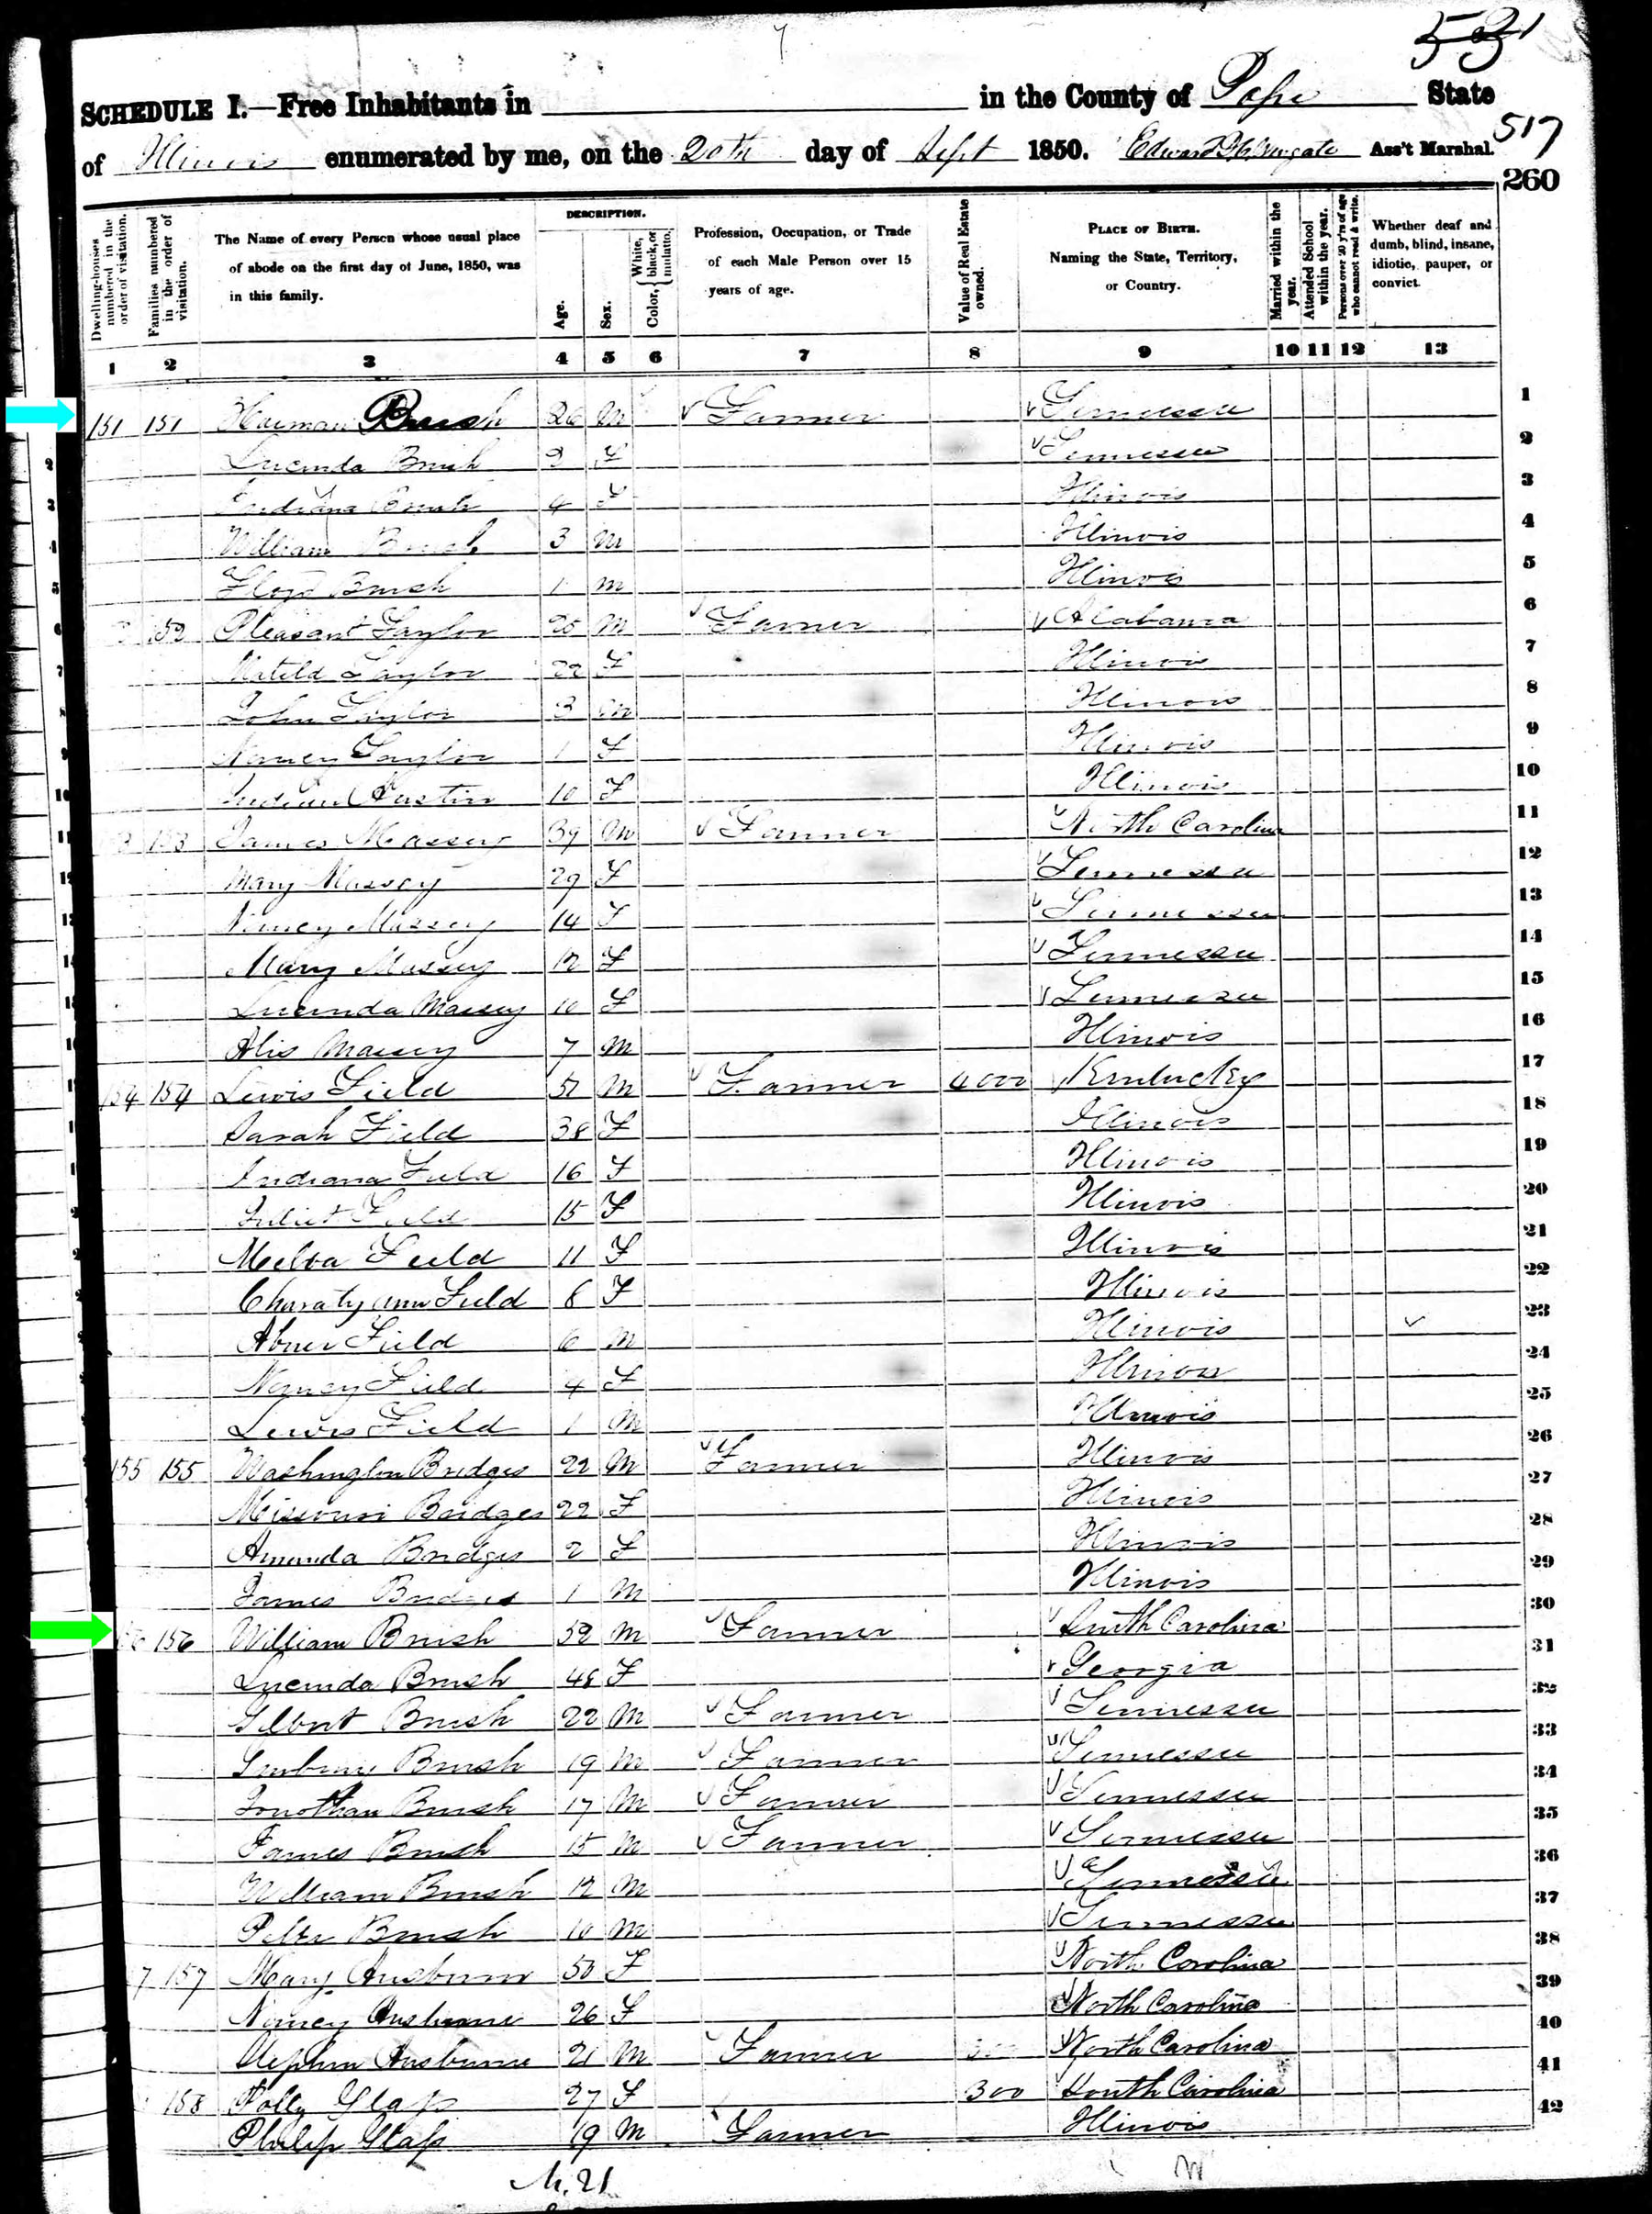 531
SCHEDULE I.—Free Inhabitants in in the County of Pope State
517
of Illinois enumerated by me, on the 20th day of Sept 1850. Ass't Marshal.
260
Dwelling-houses numbered in the order of visitation.
Families numbered in the order of visitation.
The Name of every Person whose usual place of abode on the first day of June, 1850, was in this family.
DESCRIPTION.
Age.
Sex.
Color, White, black, or mulatto.
Profession, Occupation, or Trade of each Male Person over 15 years of age.
Value of Real Estate owned.
PLACE OF BIRTH. Naming the State, Territory, or Country.
Married within the year.
Attended School within the year.
Persons over 20 y'rs of age who cannot read & write.
Whether deaf and dumb, blind, insane, idiotic, pauper, or convict.
1 2 3 4 5 6 7 8 9 10 11 12 13
151 151 Brush 26 M Farmer Tennessee 1
Lucinda Brush F Tennessee 2
Brush 4 F Illinois 3
William Brush 3 M Illinois 4
Floyd Brush 1 M Illinois 5
152 Pleasant Taylor M Farmer Alabama 6
Matild Taylor 22 F Illinois 7
John Taylor 3 M Illinois 8
Nancy Taylor 1 F Illinois 9
Austin 10 F Illinois 10
153 James Massey 39 M Farmer North Carolina 11
Mary Massey 29 F Tennessee 12
Nancy Massey 14 F Tennessee 13
Mary Massey 12 F Tennessee 14
Lucinda Massey 10 F Tennessee 15
Massey 7 M Illinois 16
154 154 Lewis Field 51 M Farmer 4000 Kentucky 17
Sarah Field 38 F Illinois 18
Indiana Field 16 F Illinois 19
Juliet Field 15 F Illinois 20
Field 11 F Illinois 21
Charaty Ann Field 8 F Illinois 22
Abner Field 6 M Illinois 23
Nancy Field 4 F Illinois 24
Lewis Field 1 M Illinois 25
155 155 Washington Bridges 22 M Farmer Illinois 26
Missouri Bridges 22 F Illinois 27
Amanda Bridges 2 F Illinois 28
James Bridges 1 M Illinois 29
156 William Brush 52 M Farmer South Carolina 30
Lucinda Brush 48 F Georgia 31
Brush 22 M Farmer Tennessee 32
Brush 19 M Farmer Tennessee 33
Jonothan Brush 17 M Farmer Tennessee 34
James Brush 15 M Farmer Tennessee 35
William Brush 12 M Tennessee 36
Peter Brush 10 M Tennessee 37
7 157 Mary 50 F North Carolina 38
Nancy 26 F North Carolina 39
21 M Farmer North Carolina 40
158 Polly 27 F 300 South Carolina 41
Philip 19 M Farmer Illinois 42